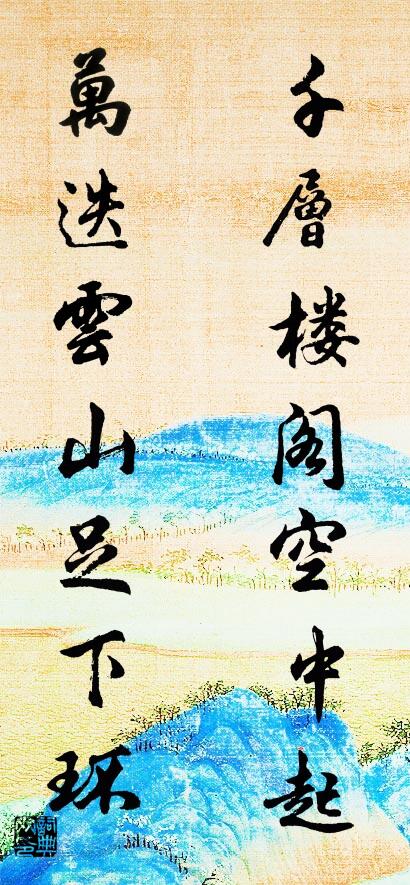 千層楼阁空中起
萬迭雲山足下环